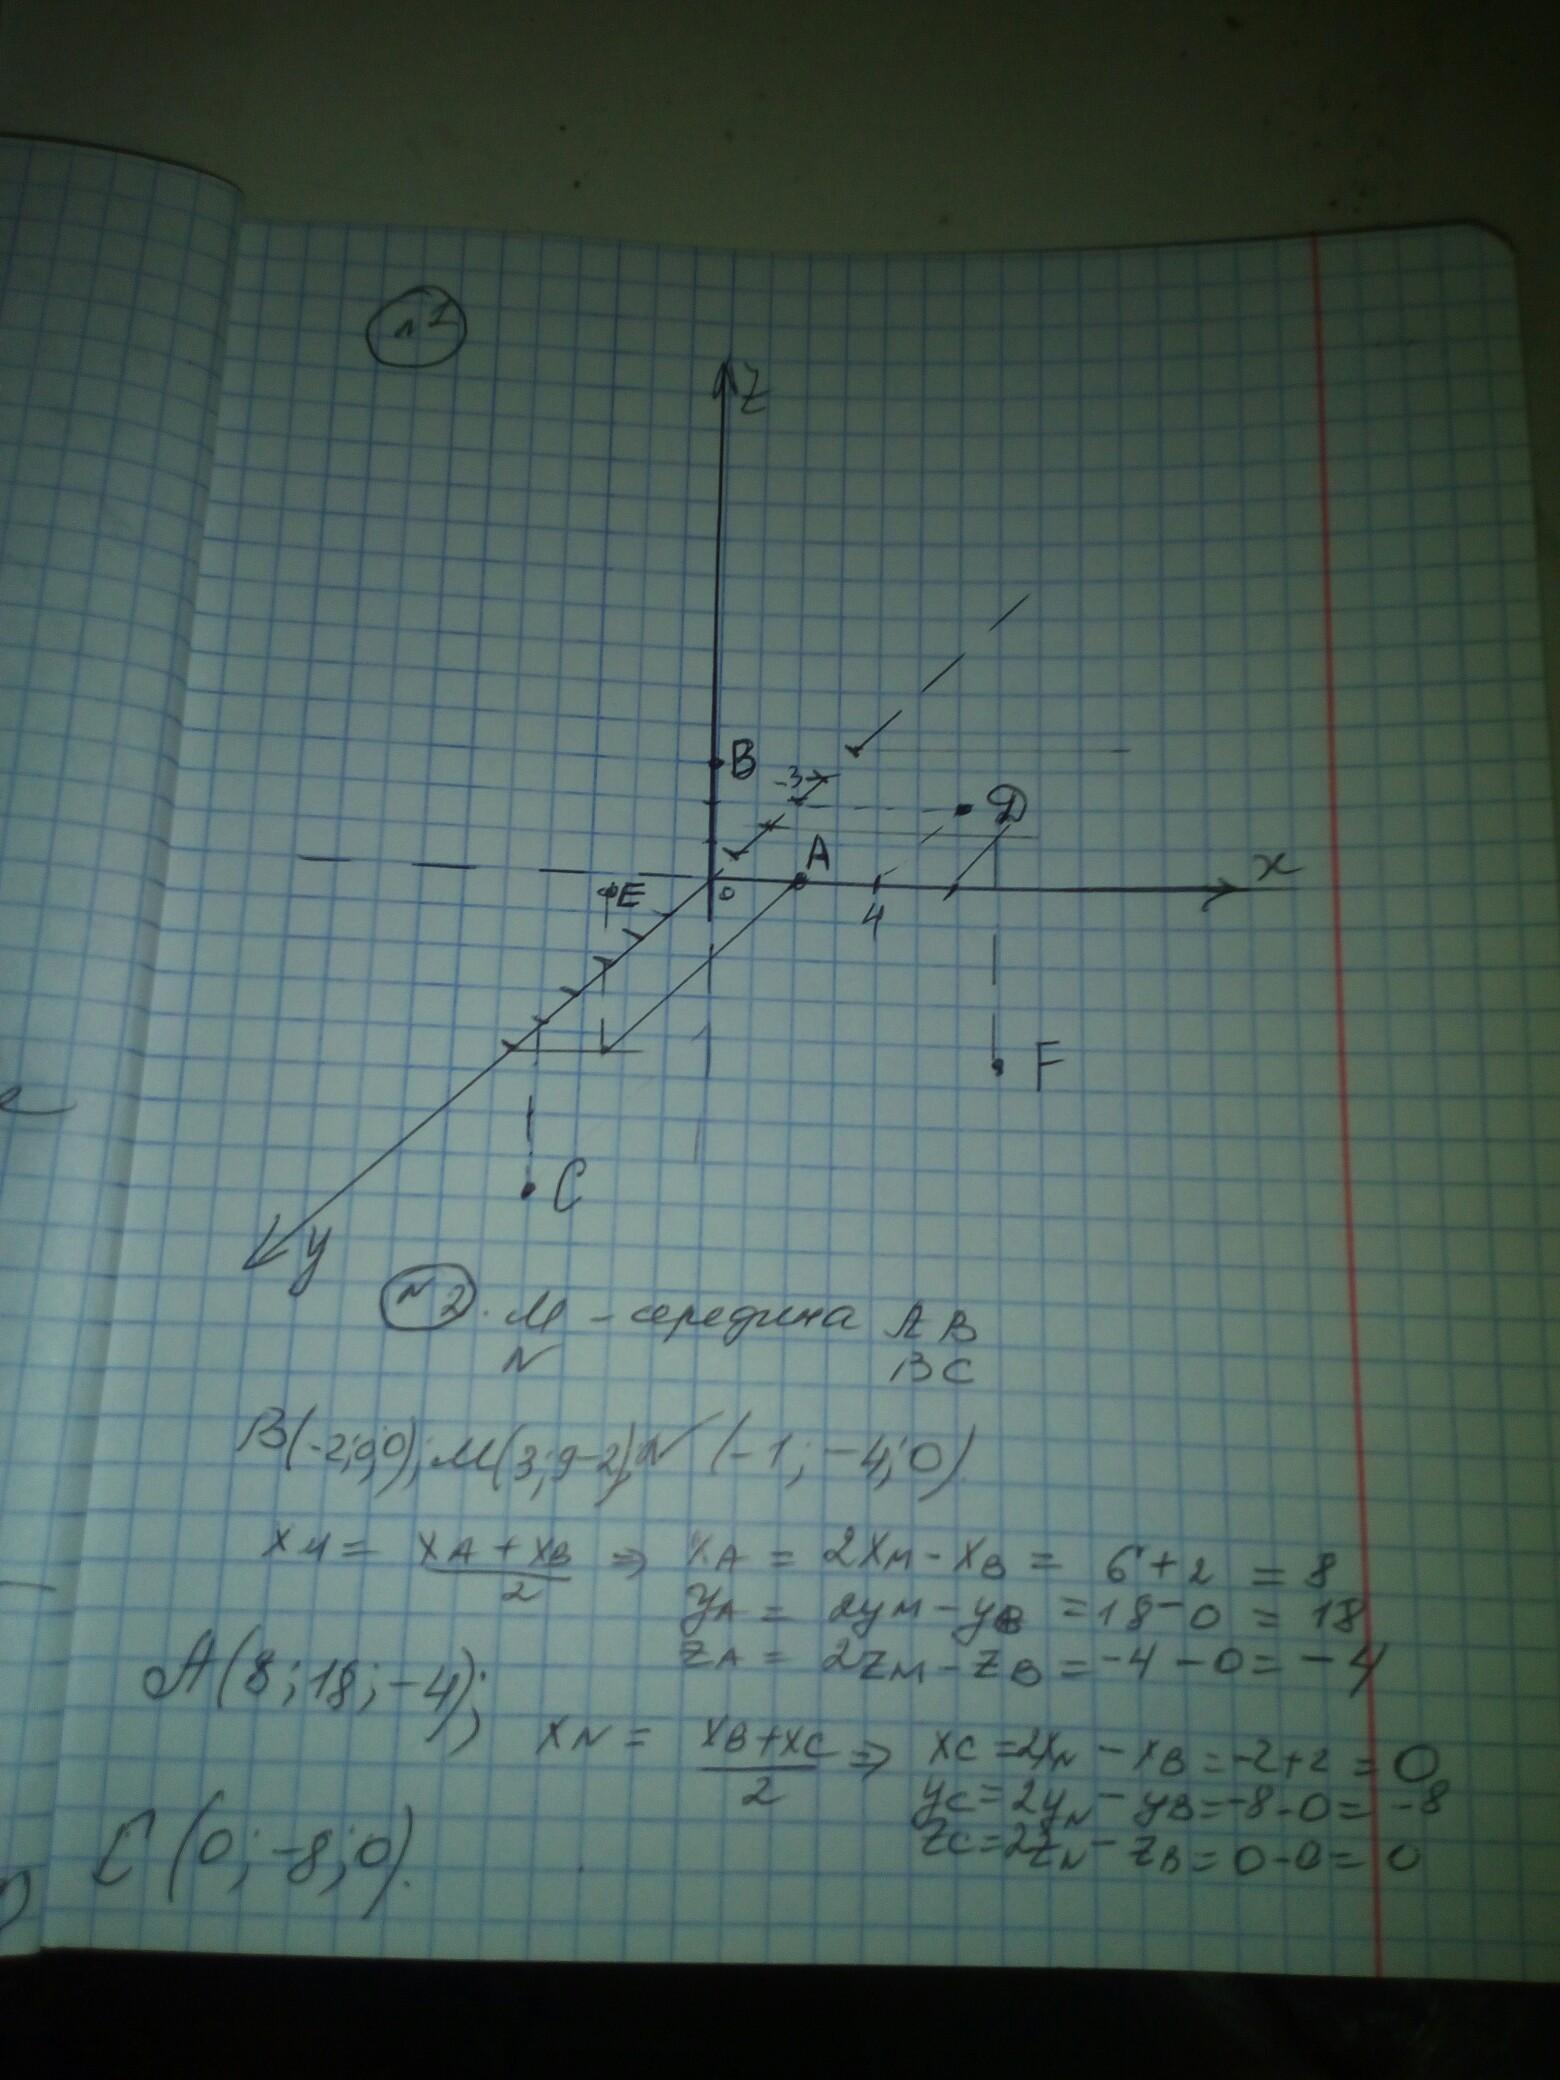 №1
z
B
-3
D
A
x
E
0
4
F
C
y
№2. M - середина AB
N BC
B(-2;0;0); M(3;9-2); N (-1; -4; 0)
xM = xA + xB / 2 ⇒ xA = 2xM - xB = 6 + 2 = 8
yA = 2yM - yB = 18 - 0 = 18
zA = 2zM - zB = -4 - 0 = -4
A(8; 18; -4);
xN = xB + xC / 2 ⇒ xC = 2xN - xB = -2 + 2 = 0
yC = 2yN - yB = -8 - 0 = -8
zC = 2zN - zB = 0 - 0 = 0
C (0; -8; 0).